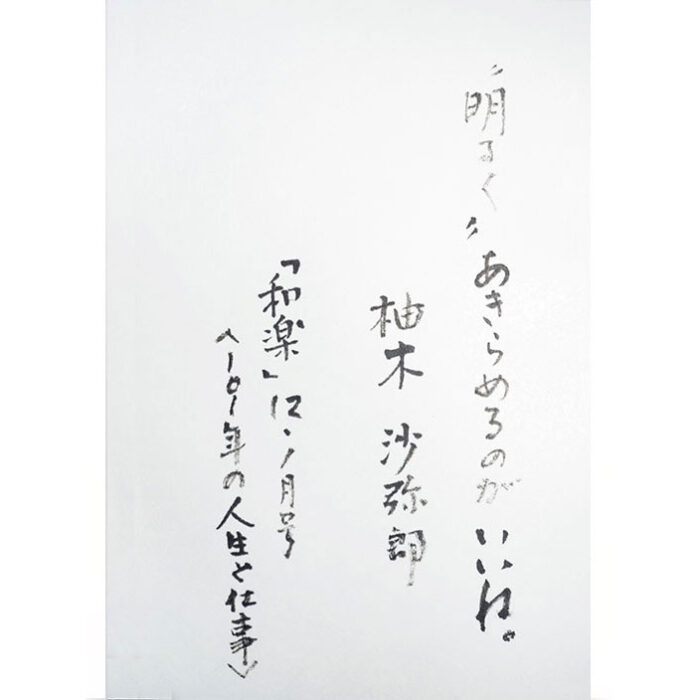 〝明るく〟あきらめるのがいいね。
柚木 沙弥郎
「和楽」12、1月号
〈101年の人生と仕事〉